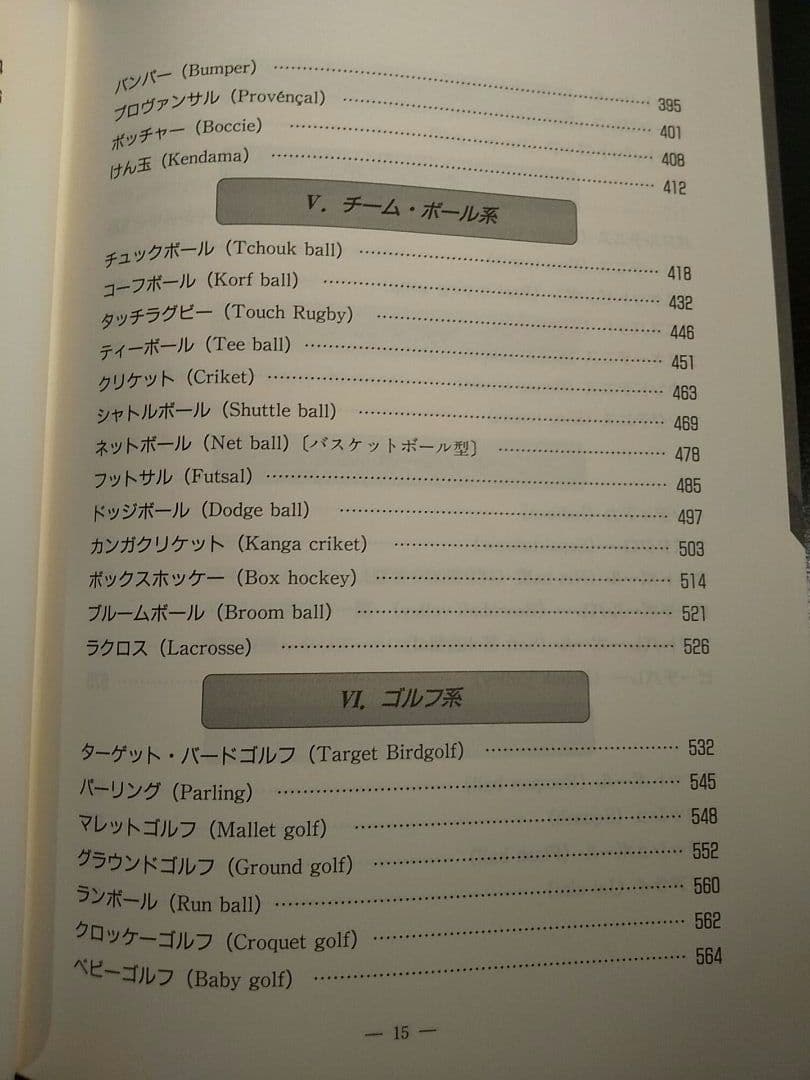 バンパー（Bumper） ………………… 395
プロヴァンサル（Provénçal） ………………… 401
ボッチャー（Boccie） ………………… 408
けん玉（Kendama） ………………… 412
Ⅴ．チーム・ボール系
チュックボール（Tchouk ball） ………………… 418
コーフボール（Korf ball） ………………… 432
タッチラグビー（Touch Rugby） ………………… 446
ティーボール（Tee ball） ………………… 451
クリケット（Criket） ………………… 463
シャトルボール（Shuttle ball） ………………… 469
ネットボール（Net ball）〔バスケットボール型〕 ………………… 478
フットサル（Futsal） ………………… 485
ドッジボール（Dodge ball） ………………… 497
カンガクリケット（Kanga criket） ………………… 503
ボックスホッケー（Box hockey） ………………… 514
ブルームボール（Broom ball） ………………… 521
ラクロス（Lacrosse） ………………… 526
Ⅵ．ゴルフ系
ターゲット・バードゴルフ（Target Birdgolf） ………………… 532
パーリング（Parling） ………………… 545
マレットゴルフ（Mallet golf） ………………… 548
グラウンドゴルフ（Ground golf） ………………… 552
ランボール（Run ball） ………………… 560
クロッケーゴルフ（Croquet golf） ………………… 562
ベビーゴルフ（Baby golf） ………………… 564
― 15 ―